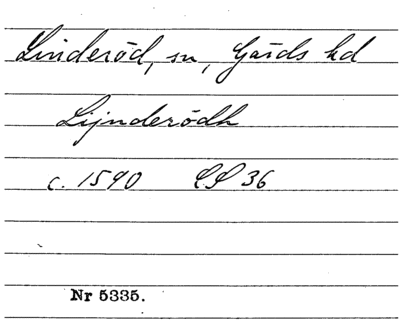 Linderöd, sn, Gärds hd
Lijnderödh
c. 1590 LP 36
Nr 5335.